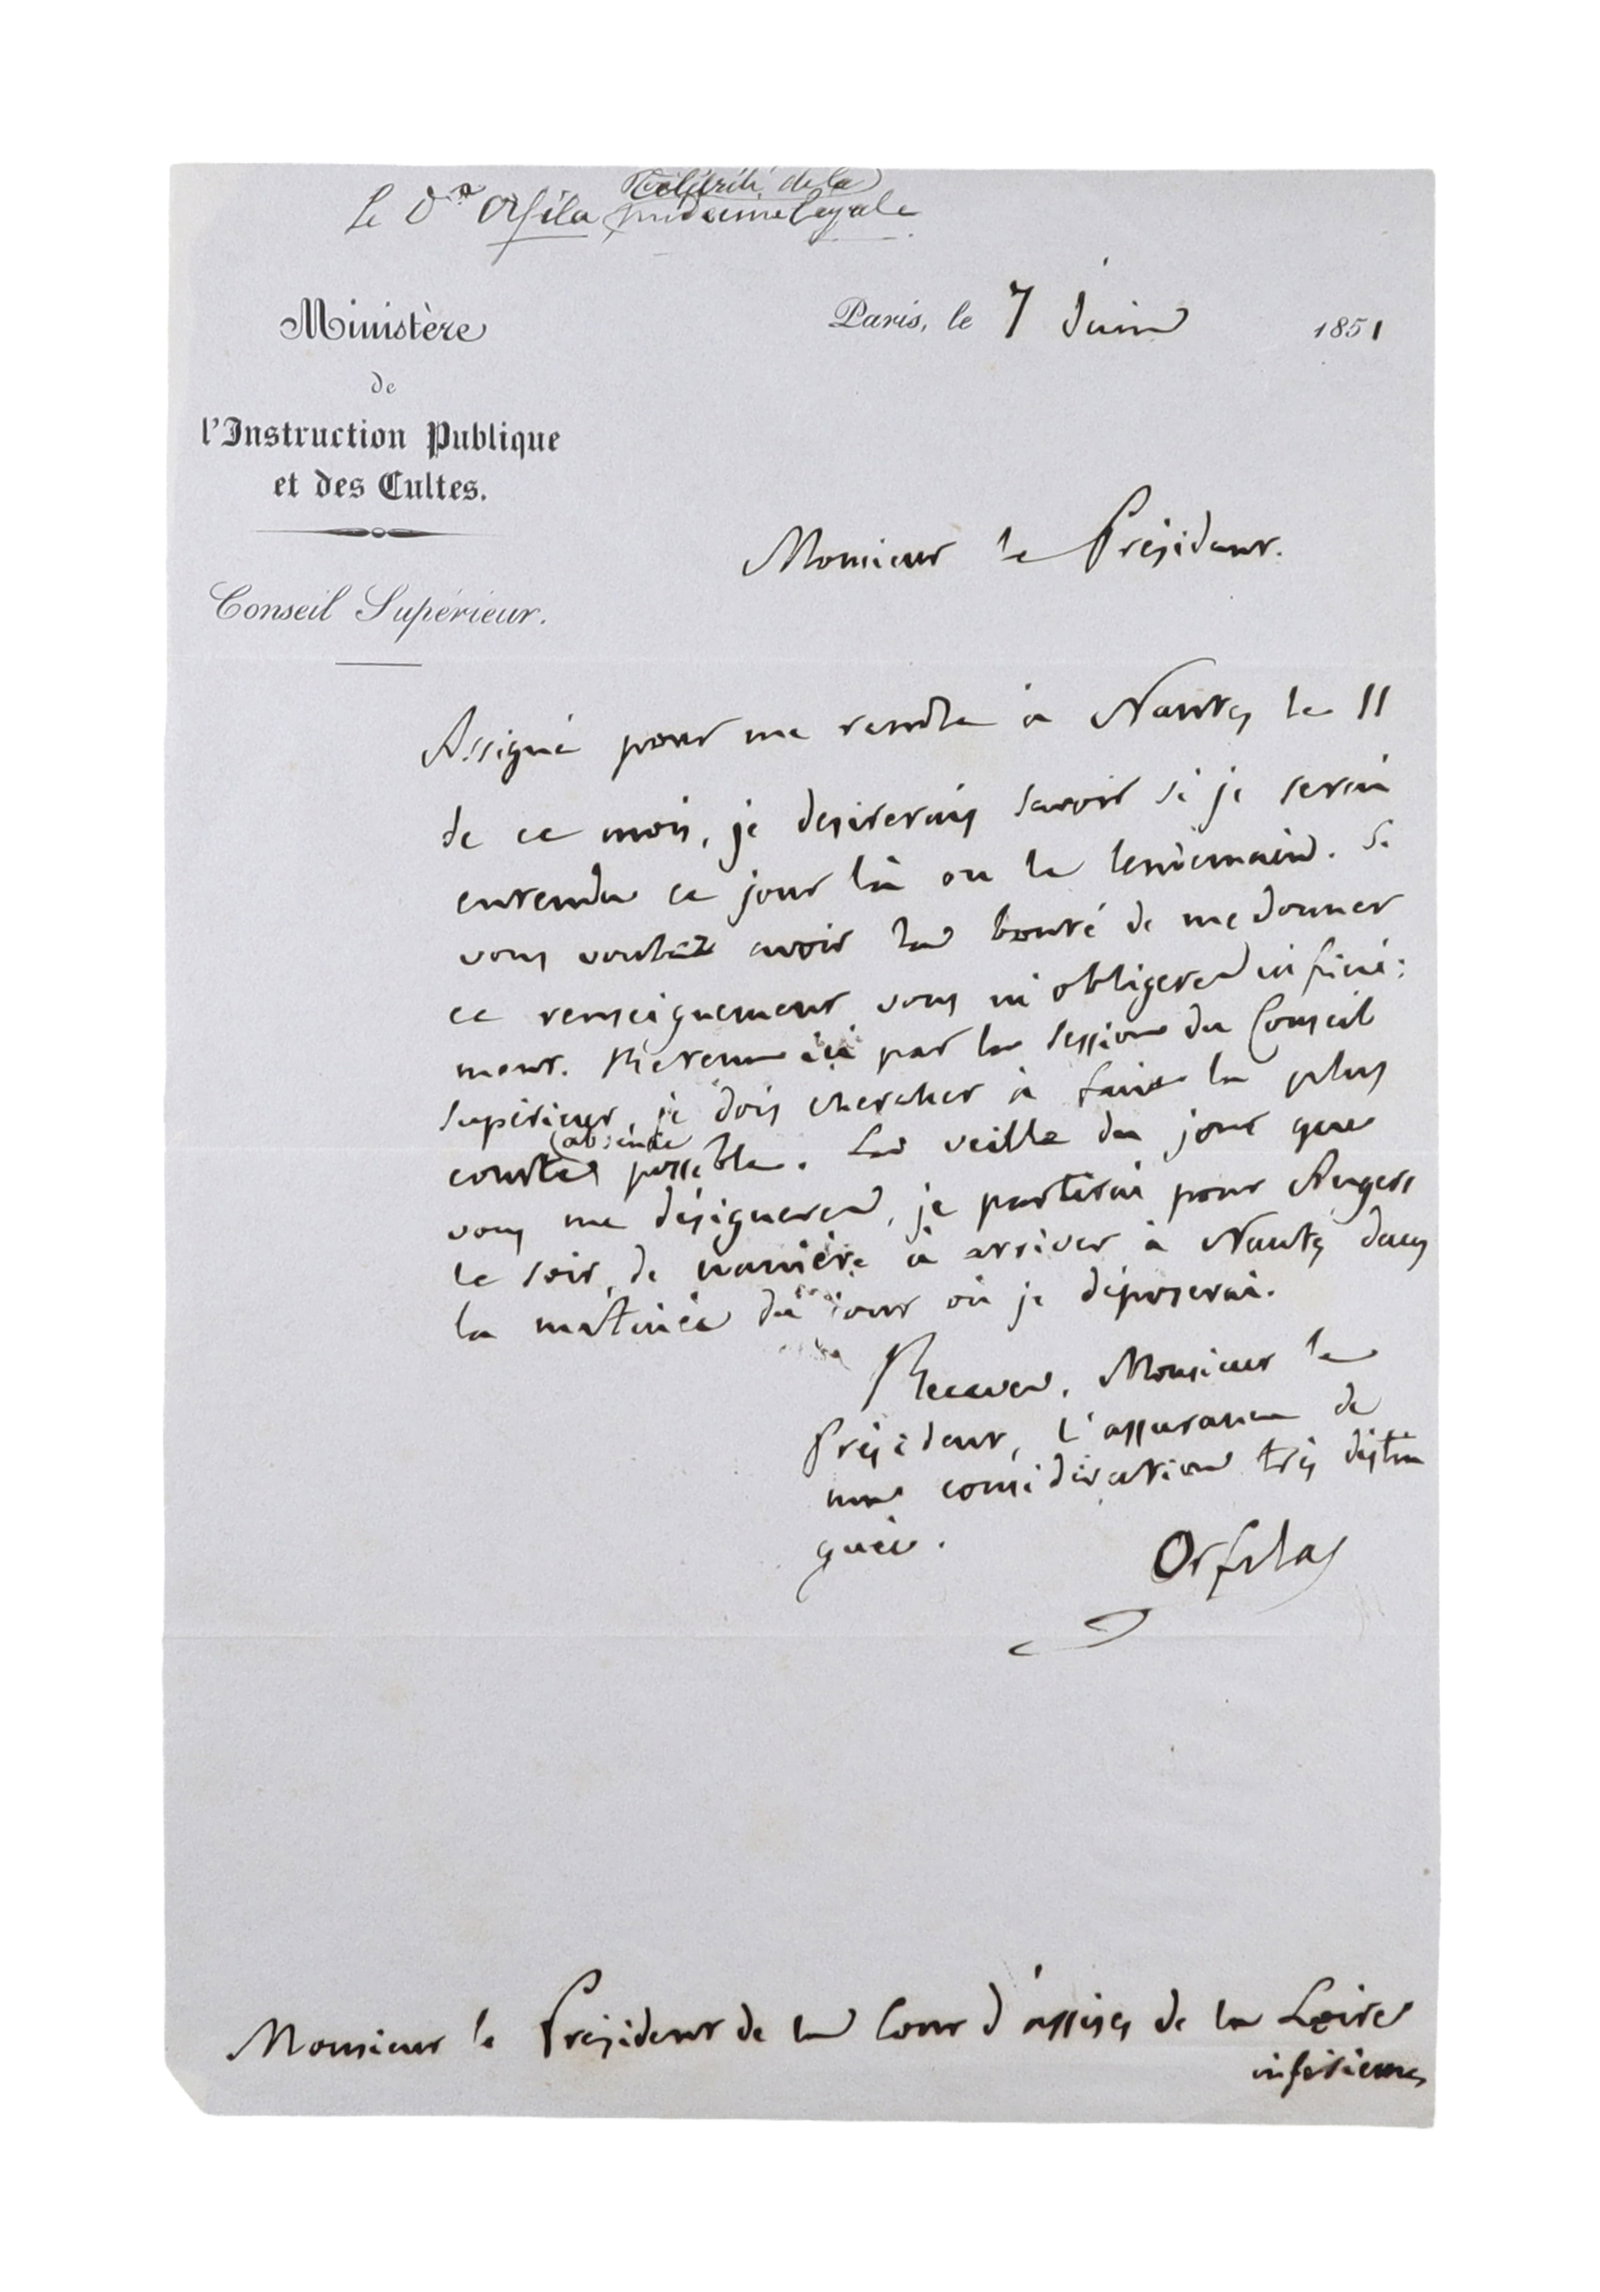 Le Dr Orfila Célébrité de la
médecine légale
Ministère
de
l'Instruction Publique
et des Cultes.
Conseil Supérieur.
Paris, le 7 Juin 1851
Monsieur le Président.
Assigné pour me rendre à Nantes le 11
de ce mois, je desirerais savoir si je serai
entendu ce jour là ou le lendemain. Si
vous voulez avoir la bonté de me donner
ce renseignement vous m'obligerez infini:
ment. Retenu ici par la session du Conseil
supérieur, je dois chercher à faire la plus
courte absence possible. La veille du jour que
vous me désignerez, je partirai pour Angers
le soir, de manière à arriver à Nantes dans
la matinée du jour où je déposerai.
Recevez, Monsieur le
Président, l'assurance de
ma considération très distin
guée.
Orfila
Monsieur le Président de la Cour d'assises de la Loire
inférieure